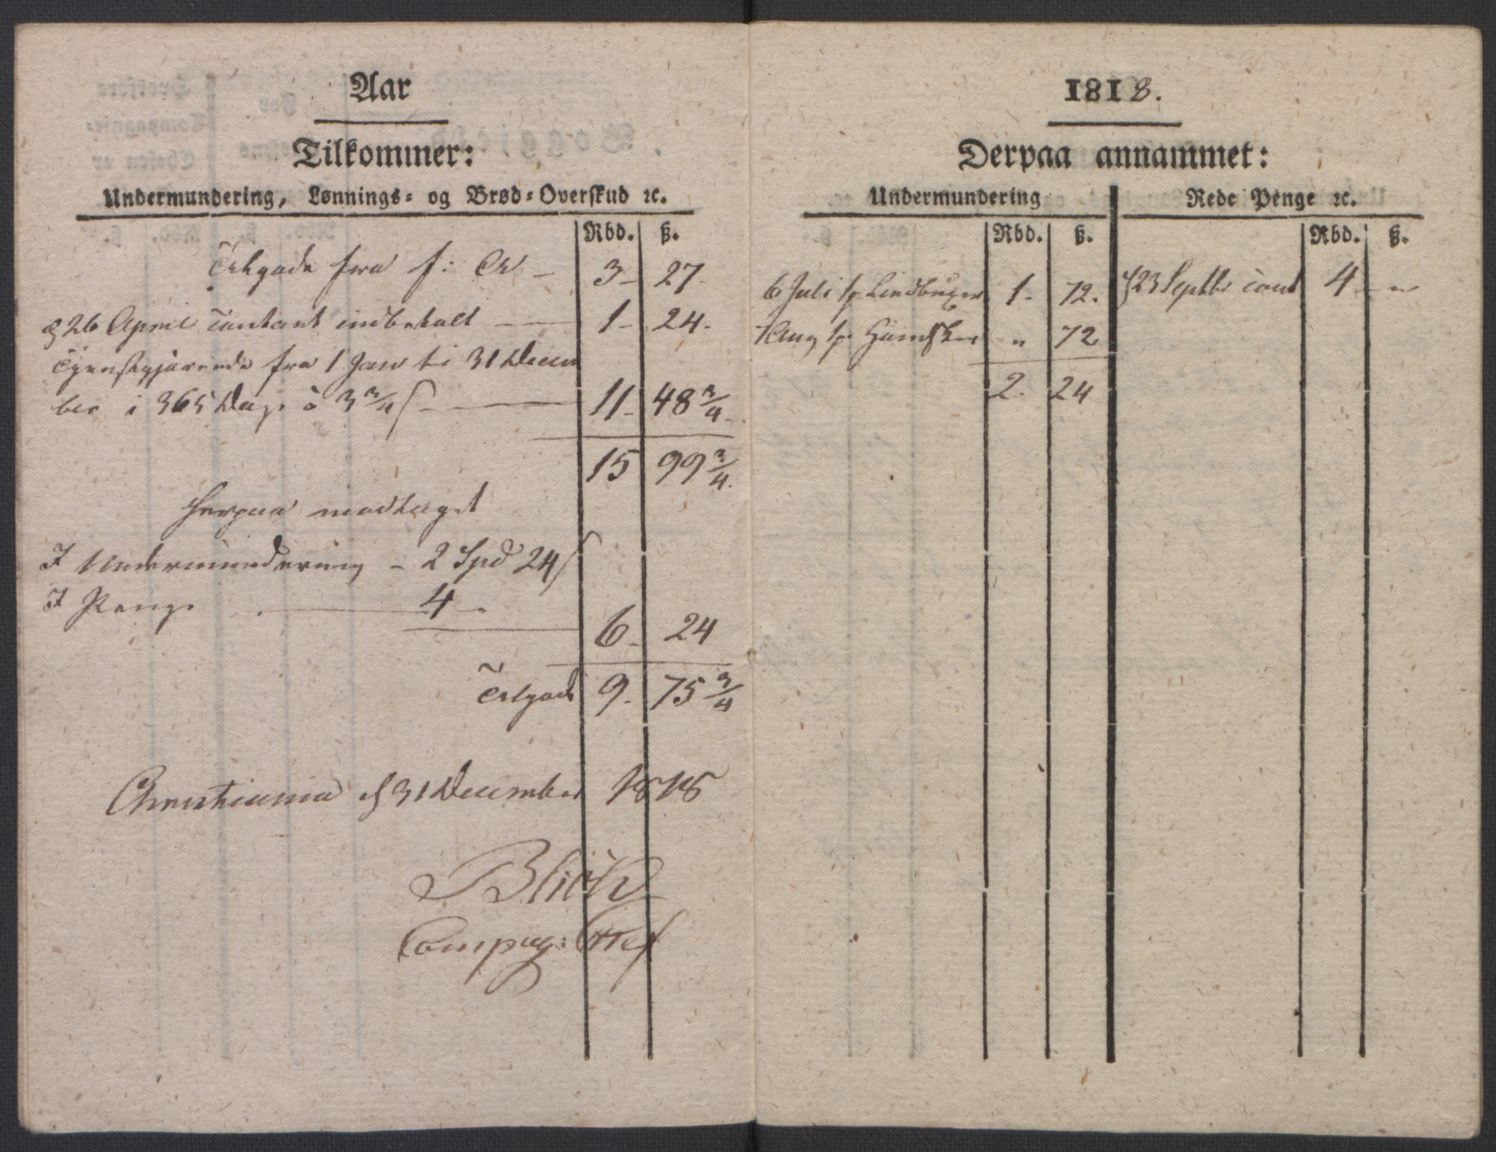 Aar
Tilkommer:
Undermundering, Lønnings- og Brød-Overskud ɔc.
Rbd. ß.
Tilgode fra f: Aar 3 27
d 26 April Contant indbetalt 1 24
Tjenstgjørende fra 1 Jan til 31 Decem
ber i 365 Dage a 3 3/4 ß 11 48 3/4
15 99 3/4
Herpaa modtaget
I Undermundering 2 Spd 24 ß
I Penge 4
6 24
Tilgode 9 75 3/4
Christiania d 31 December 1818
Compag: Chef
1818.
Derpaa annammet:
Undermundering Rede Penge ɔc.
Rbd. ß. Rbd. ß.
6 Juli 1 p 1 72. 23 Septbr Cont 4 "
Aug 1 p " 72
2 24